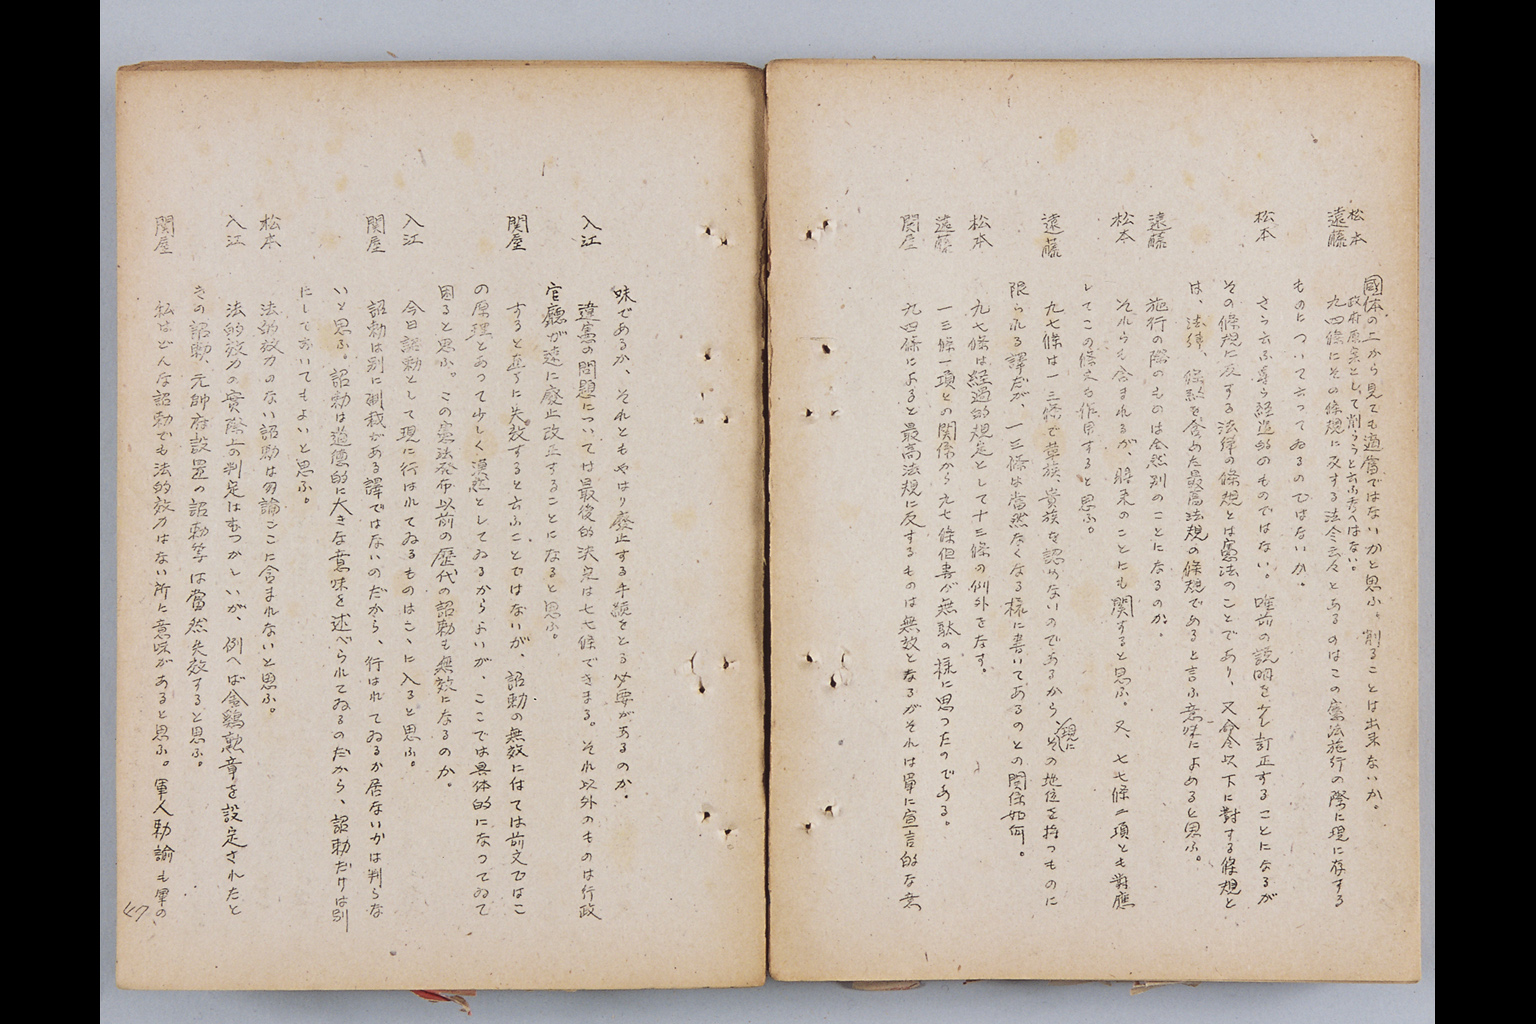 國体の上から見ても適當ではないかと思ふ。削ることは出来ないか。
松本 政府原案として削らうと云ふ考へはない。
遠藤 九四條にその條規に反する法令云々とあるのはこの憲法施行の際に現に存する
ものについて云つてゐるのではないか。
松本 さう云ふ専ら経過的のものではない。唯前の説明を少し訂正することになるが
その條規に反する法律の條規とは憲法のことであり、又命令以下に對する條規と
は、法律、條約を含めた最高法規の條規であると言ふ意味によめると思ふ。
遠藤 施行の際のものは全然別のことになるのか。
松本 それらも含まれるが、将来のことにも関すると思ふ。又、七七條二項とも對應
してこの條文も作用すると思ふ。
遠藤 九七條は一三條で華族、貴族を認めないのであるから、現にその地位を持つものに
限られる譯だが、一三條は當然なくなる様に書いてあるのとの関係如何。
松本 九七條は経過的規定として十三條の例外をなす。
遠藤 一三條一項との関係から九七條但書が無駄の様に思つたのである。
関屋 九四條によると最高法規に反するものは無效となるがそれは單に宣言的な意
味であるか、それともやはり廢止する手続をとる必要があるのか。
入江 違憲の問題については最後的決定は七七條できまる。それ以外のものは行政
官廳が遠に廢止改正することになると思ふ。
関屋 すると直ちに失效すると云ふことではないが、詔勅の無效に付ては前文ではこ
の原理とあつて少しく漠然としてゐるからよいが、ここでは具体的になつてゐて
困ると思ふ。この憲法発布以前の歴代の詔勅も無效になるのか。
入江 今日詔勅として現に行はれてゐるものはこゝに入ると思ふ。
関屋 詔勅は別に制裁がある譯ではないのだから、行はれてゐるか居ないかは判らな
いと思ふ。詔勅は道德的に大きな意味を述べられてゐるのだから、詔勅だけは別
にしておいてもよいと思ふ。
松本 法的效力のない詔勅は勿論ここに含まれないと思ふ。
入江 法的效力の實際上の判定はむつかしいが、例へば金鵄勲章を設定されたと
きの詔勅、元帥府設置の詔勅等は當然失效すると思ふ。
関屋 私はどんな詔勅でも法的效力はない所に意味があると思ふ。軍人勅諭も軍の
47